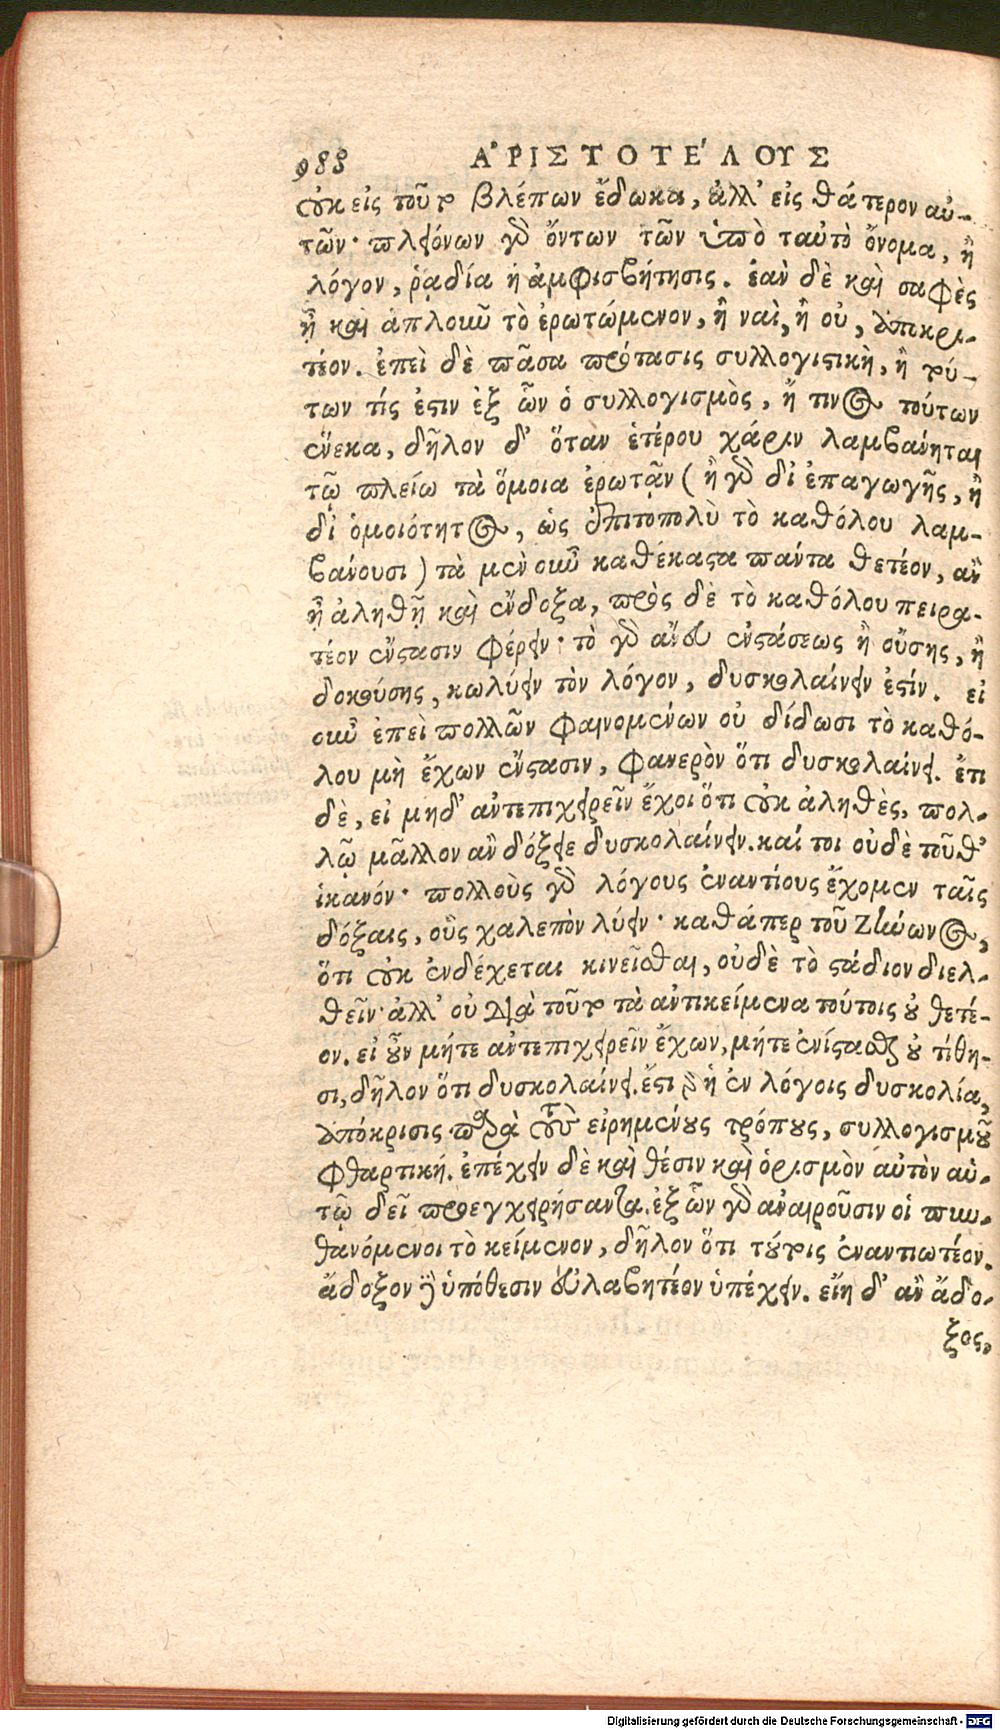 988 ἈΡΙΣΤΟΤΈΛΟΥΣ
οὐκ εἰς τοῦτο βλέπων ἔδωκα, ἀλλ' εἰς θάτερον αὐ-
τῶν· πλειόνων γὰρ ὄντων τῶν ὑπὸ ταὐτὸ ὄνομα, ἢ
λόγον, ῥᾳδία ἡ ἀμφισβήτησις. ἐὰν δὲ καὶ σαφὲς
ᾖ καὶ ἁπλοῦν τὸ ἐρωτώμενον, ἢ ναὶ, ἢ οὐ, ἀποκρι-
τέον. ἐπεὶ δὲ πᾶσα πρότασις συλλογιστικὴ, ἢ τού-
των τίς ἐστιν ἐξ ὧν ὁ συλλογισμὸς, ἤ τινος τούτων
ἕνεκα, δῆλον δ' ὅταν ἑτέρου χάριν λαμβάνηται
τῷ πλείω τὰ ὅμοια ἐρωτᾷν (ἢ γὰρ δι' ἐπαγωγῆς, ἢ
δι' ὁμοιότητος, ὡς ἐπιτοπολὺ τὸ καθόλου λαμ-
βάνουσι) τὰ μὲν οὖν καθέκαστα πάντα θετέον, ἂν
ᾖ ἀληθῆ καὶ ἔνδοξα, πρὸς δὲ τὸ καθόλου πειρα-
τέον ἔνστασιν φέρειν· τὸ γὰρ ἄνευ ἐνστάσεως ἢ οὔσης, ἢ
δοκούσης, κωλύειν τὸν λόγον, δυσκολαίνειν ἐστίν. εἰ
οὖν ἐπεὶ πολλῶν φαινομένων οὐ δίδωσι τὸ καθό-
λου μὴ ἔχων ἔνστασιν, φανερὸν ὅτι δυσκολαίνει. ἔτι
δὲ, εἰ μηδ' ἀντεπιχειρεῖν ἔχοι ὅτι οὐκ ἀληθὲς, πολ-
λῷ μᾶλλον ἂν δόξειε δυσκολαίνειν. καί τοι οὐδὲ τοῦθ'
ἱκανόν· πολλοὺς γὰρ λόγους ἐναντίους ἔχομεν ταῖς
δόξαις, οὓς χαλεπὸν λύειν· καθάπερ τοῦ Ζήνωνος,
ὅτι οὐκ ἐνδέχεται κινεῖσθαι, οὐδὲ τὸ στάδιον διελ-
θεῖν· ἀλλ' οὐ διὰ τοῦτο τὰ ἀντικείμενα τούτοις οὐ θετέ-
ον. εἰ οὖν μήτε ἀντεπιχειρεῖν ἔχων, μήτε ἐνίστασθαι οὐ τίθη-
σι, δῆλον ὅτι δυσκολαίνει. ἔστι γὰρ ἡ ἐν λόγοις δυσκολία,
ἀπόκρισις παρὰ τοὺς εἰρημένους τρόπους, συλλογισμοῦ
φθαρτική. ἐπέχειν δὲ καὶ θέσιν καὶ ὁρισμὸν αὐτὸν αὑ-
τῷ δεῖ προεγχειρήσαντα. ἐξ ὧν γὰρ ἀναιροῦσιν οἱ πυν-
θανόμενοι τὸ κείμενον, δῆλον ὅτι τούτοις ἐναντιωτέον.
ἄδοξον δὲ ὑπόθεσιν εὐλαβητέον ὑπέχειν. εἴη δ' ἂν ἄδο-
ξος,
Digitalisierung gefördert durch die Deutsche Forschungsgemeinschaft - DFG